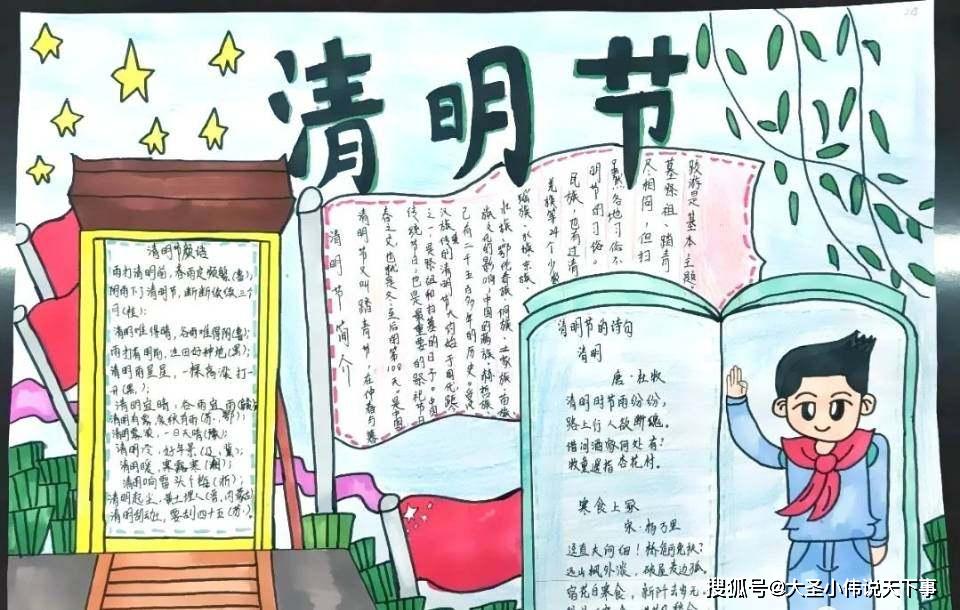 清明节
清明节谚语
雨打清明前,春雨定频繁(鲁);
阴雨下了清明节,断断续续三个
月(桂);
清明难得晴,谷雨难得阴(鲁);
雨打清明前,洼田好种地(黑);
清明雨星星,一棵高粱打一
升(黑);
清明宜晴,谷雨宜雨(赣);
清明有雾,夏秋有雨(苏、鄂);
清明雾浓,一日天晴(豫);
清明冷,好年景(辽,冀);
清明暖,寒露寒(湘);
清明响雷头个梅(浙);
清明起尘,黄土埋人(晋,内蒙古)
清明刮动土,要刮四十五(苏
清明节简介
清明节又叫踏青节,在仲春与暮
春之交,也就是冬至后的第108天,是中国
传统节日,也是最重要的祭祀节日
之一,是祭祖和扫墓的日子。中国
汉族传统的清明节大约始于周代,距今
已有二千五百多年的历史。受汉
族文化的影响,中国的满族、赫哲族、
壮族、鄂伦春族、侗族、土家族、苗族、
瑶族、黎族、水族、京族
羌族等24个少数
民族,也有过清
明节的习俗。
虽然各地习俗不
尽相同,但扫
墓祭祖、踏青
郊游是基本主题
清明节的诗句
清明
唐·杜牧
清明时节雨纷纷,
路上行人欲断魂。
借问酒家何处有?
牧童遥指杏花村。
寒食上冢
宋·杨万里
迳直夫何细!桥危可免扶?
远山枫外淡,破屋麦边孤。
宿花日寒食,新阡去岁无。
搜狐号@大圣小伟说天下事